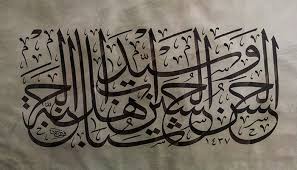 الحسن والحسين سيدا شباب أهل الجنة
١٤٣٧